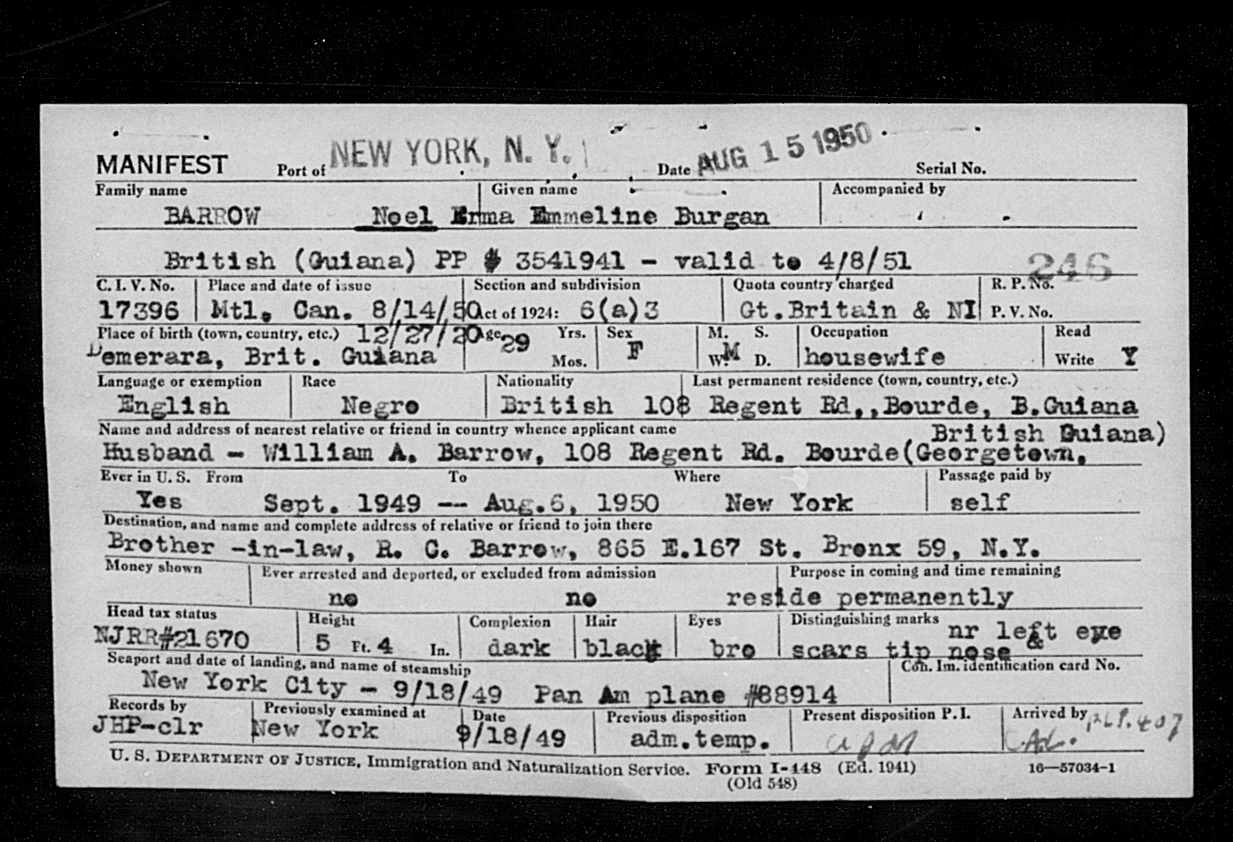 MANIFEST Port of NEW YORK, N. Y. Date AUG 15 1950 Serial No.
Family name Given name Accompanied by
BARROW Noel Erma Emmeline Burgan
British (Guiana) PP # 3541941 - valid to 4/8/51 246
C. I. V. No. Place and date of issue Section and subdivision Quota country charged R. P. No.
17396 Mtl. Can. 8/14/50 Act of 1924: 6(a)3 Gt.Britain & NI P. V. No.
Place of birth (town, country, etc.) 12/27/20 Age 29 Yrs. Sex M. S. Occupation Read
Demerara, Brit. Guiana Mos. F W. M D. housewife Write Y
Language or exemption Race Nationality Last permanent residence (town, country, etc.)
English Negro British 108 Regent Rd,,Bourde, B.Guiana
Name and address of nearest relative or friend in country whence applicant came British Guiana)
Husband - William A. Barrow, 108 Regent Rd. Bourde(Georgetown,
Ever in U. S. From To Where Passage paid by
Yes Sept. 1949 -- Aug.6, 1950 New York self
Destination, and name and complete address of relative or friend to join there
Brother -in-law, R. C. Barrow, 865 E.167 St. Bronx 59, N.Y.
Money shown Ever arrested and deported, or excluded from admission Purpose in coming and time remaining
no no reside permanently
Head tax status Height Complexion Hair Eyes Distinguishing marks nr left eye
NJRR#21670 5 Ft. 4 In. dark black bro scars tip nose &
Seaport and date of landing, and name of steamship Can. Im. identification card No.
New York City - 9/18/49 Pan Am plane #88914
Records by Previously examined at Date Previous disposition Present disposition P. I. Arrived by
JHP-clr New York 9/18/49 adm.temp.
U. S. DEPARTMENT OF JUSTICE, Immigration and Naturalization Service. Form I-448 (Ed. 1941) 16—57034-1
(Old 548)